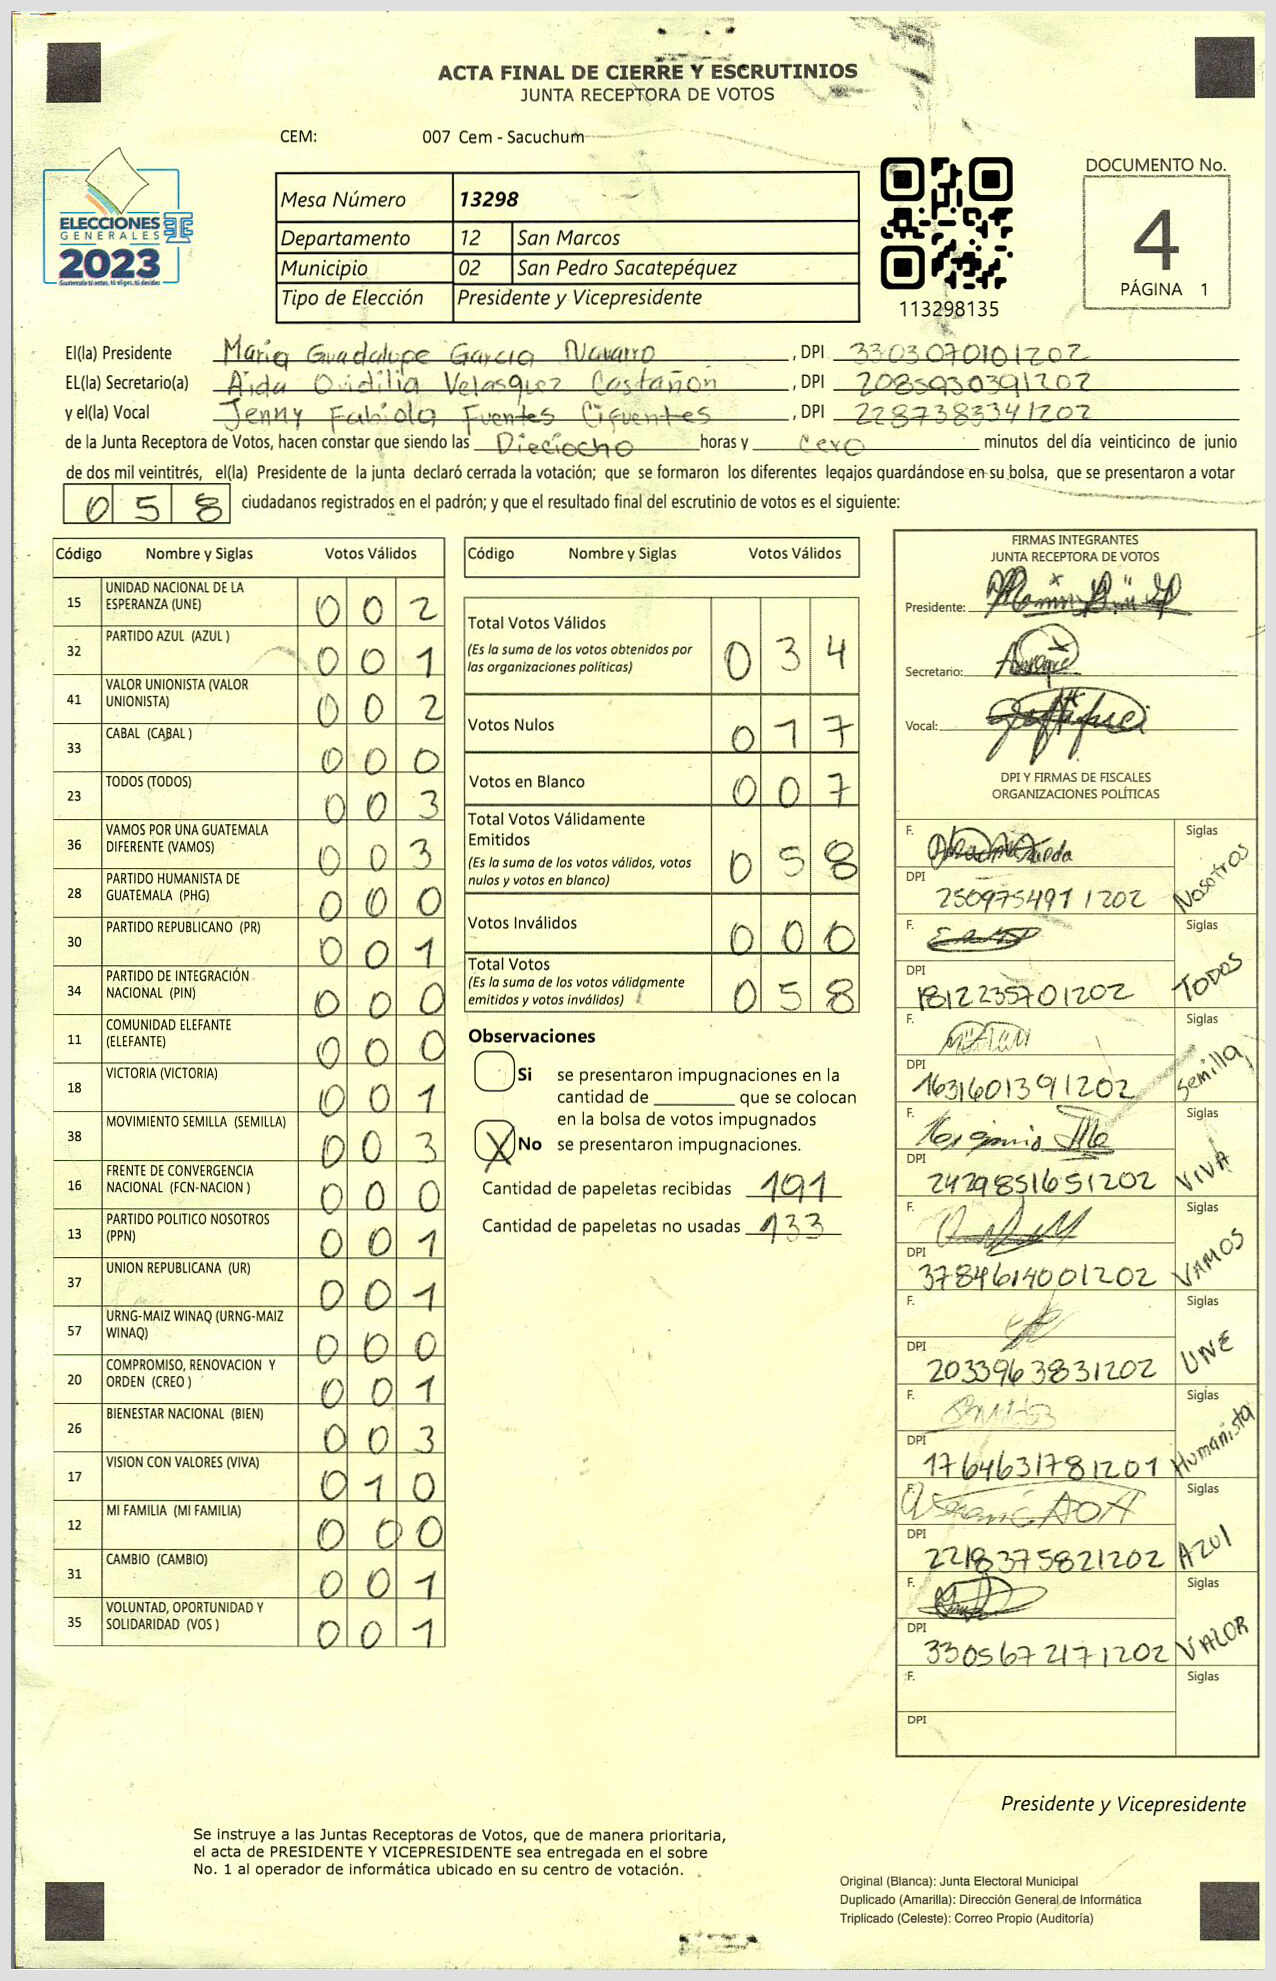 ACTA FINAL DE CIERRE Y ESCRUTINIOS
JUNTA RECEPTORA DE VOTOS
CEM: 007 Cem - Sacuchum
ELECCIONES
GENERALES
2023
Mesa Número 13298
Departamento 12 San Marcos
Municipio 02 San Pedro Sacatepéquez
Tipo de Elección Presidente y Vicepresidente
113298135
DOCUMENTO No.
4
PÁGINA 1
El(la) Presidente Maria Guadalupe Garcia Navarro , DPI 3303070101202
EL(la) Secretario(a) Aida Ovidilia Velasquez Castañon , DPI 2085930391202
y el(la) Vocal Jenny Fabiola Fuentes Cifuentes , DPI 2287383341202
de la Junta Receptora de Votos, hacen constar que siendo las Dieciocho horas y cero minutos del día veinticinco de junio
de dos mil veintitrés, el(la) Presidente de la junta declaró cerrada la votación; que se formaron los diferentes legajos guardándose en su bolsa, que se presentaron a votar
058 ciudadanos registrados en el padrón; y que el resultado final del escrutinio de votos es el siguiente:
Código Nombre y Siglas Votos Válidos
15 UNIDAD NACIONAL DE LA
ESPERANZA (UNE) 002
32 PARTIDO AZUL (AZUL ) 001
41 VALOR UNIONISTA (VALOR
UNIONISTA) 002
33 CABAL (CABAL ) 000
23 TODOS (TODOS) 003
36 VAMOS POR UNA GUATEMALA
DIFERENTE (VAMOS) 003
28 PARTIDO HUMANISTA DE
GUATEMALA (PHG) 000
30 PARTIDO REPUBLICANO (PR) 001
34 PARTIDO DE INTEGRACIÓN
NACIONAL (PIN) 000
11 COMUNIDAD ELEFANTE
(ELEFANTE) 000
18 VICTORIA (VICTORIA) 001
38 MOVIMIENTO SEMILLA (SEMILLA) 003
16 FRENTE DE CONVERGENCIA
NACIONAL (FCN-NACION ) 000
13 PARTIDO POLITICO NOSOTROS
(PPN) 001
37 UNION REPUBLICANA (UR) 001
57 URNG-MAIZ WINAQ (URNG-MAIZ
WINAQ) 000
20 COMPROMISO, RENOVACION Y
ORDEN (CREO ) 001
26 BIENESTAR NACIONAL (BIEN) 003
17 VISION CON VALORES (VIVA) 010
12 MI FAMILIA (MI FAMILIA) 000
31 CAMBIO (CAMBIO) 001
35 VOLUNTAD, OPORTUNIDAD Y
SOLIDARIDAD (VOS ) 001
Código Nombre y Siglas Votos Válidos
Total Votos Válidos 034
(Es la suma de los votos obtenidos por
las organizaciones políticas)
Votos Nulos 017
Votos en Blanco 007
Total Votos Válidamente
Emitidos 058
(Es la suma de los votos válidos, votos
nulos y votos en blanco)
Votos Inválidos 000
Total Votos 058
(Es la suma de los votos válidamente
emitidos y votos inválidos)
Observaciones
Si se presentaron impugnaciones en la
cantidad de ________ que se colocan
en la bolsa de votos impugnados
X No se presentaron impugnaciones.
Cantidad de papeletas recibidas 191
Cantidad de papeletas no usadas 133
FIRMAS INTEGRANTES
JUNTA RECEPTORA DE VOTOS
Presidente:
Secretario:
Vocal:
DPI Y FIRMAS DE FISCALES
ORGANIZACIONES POLÍTICAS
F. Siglas
DPI 2509754911202 Nosotros
F. Siglas
DPI 1812235701202 TODOS
F. Siglas
DPI 1631601391202 Semilla
F. Siglas
DPI 2429851651202 VIVA
F. Siglas
DPI 3784614001202 VAMOS
F. Siglas
DPI 2033963831202 UNE
F. Siglas
DPI 1764631781201 Humanista
F. Siglas
DPI 2218375821202 AZUl
F. Siglas
DPI 3305672171202 VALOR
F. Siglas
DPI
Presidente y Vicepresidente
Se instruye a las Juntas Receptoras de Votos, que de manera prioritaria,
el acta de PRESIDENTE Y VICEPRESIDENTE sea entregada en el sobre
No. 1 al operador de informática ubicado en su centro de votación.
Original (Blanca): Junta Electoral Municipal
Duplicado (Amarilla): Dirección General de Informática
Triplicado (Celeste): Correo Propio (Auditoría)